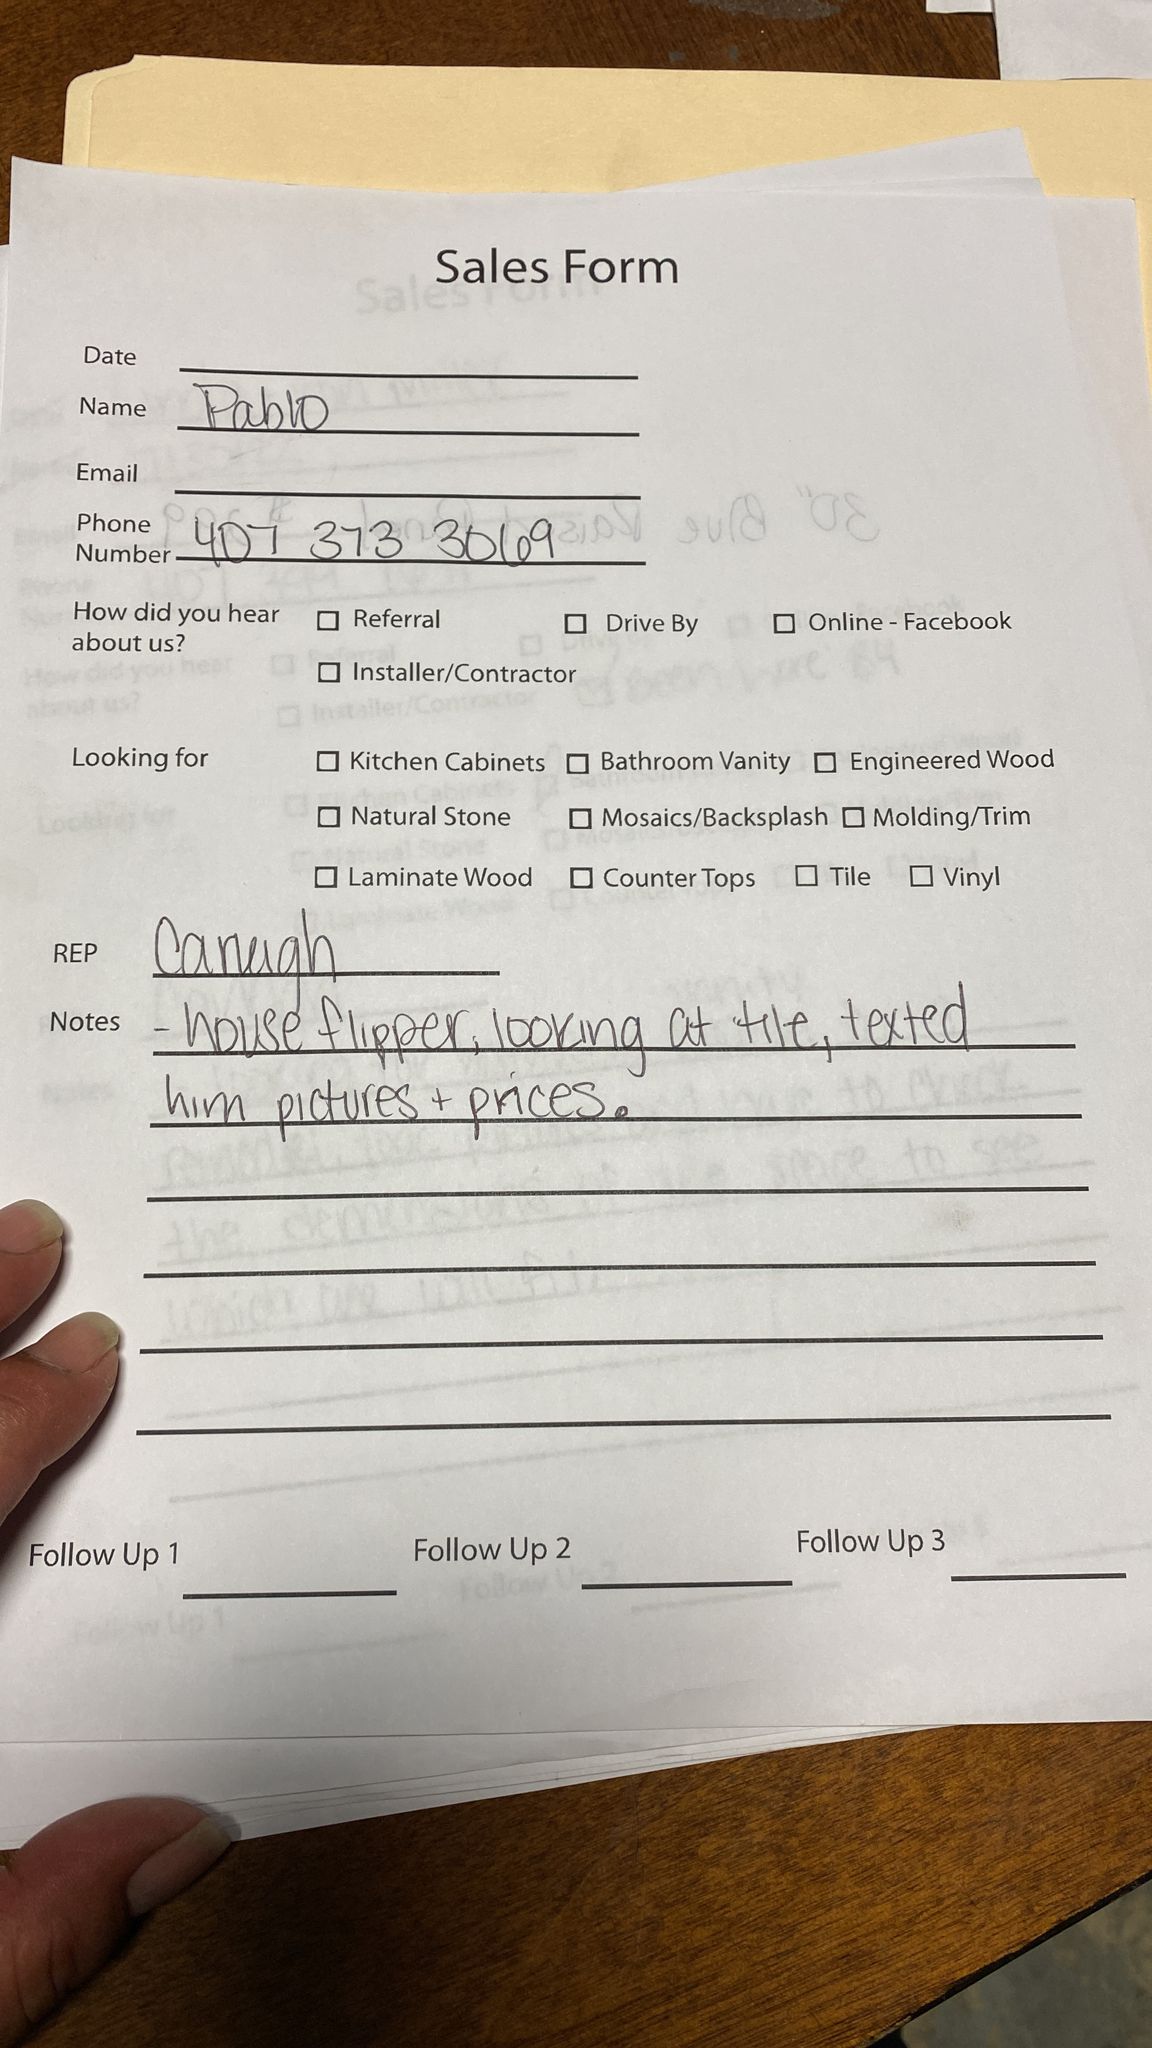 Sales Form
Date
Name Pablo
Email
Phone
Number 407 373 3069
How did you hear
about us?
☐ Referral ☐ Drive By ☐ Online - Facebook
☐ Installer/Contractor
Looking for ☐ Kitchen Cabinets ☐ Bathroom Vanity ☐ Engineered Wood
☐ Natural Stone ☐ Mosaics/Backsplash ☐ Molding/Trim
☐ Laminate Wood ☐ Counter Tops ☐ Tile ☐ Vinyl
REP
Notes - house flipper, looking at tile, texted
him pictures + prices.
Follow Up 1 Follow Up 2 Follow Up 3